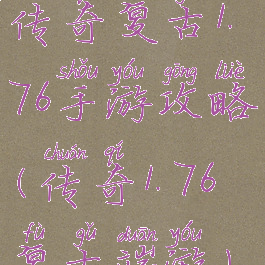 传奇复古1.
shǒu yóu gōng lüè
76手游攻略
chuán qí
(传奇1.76
fù gǔ duān yóu
复古端游)